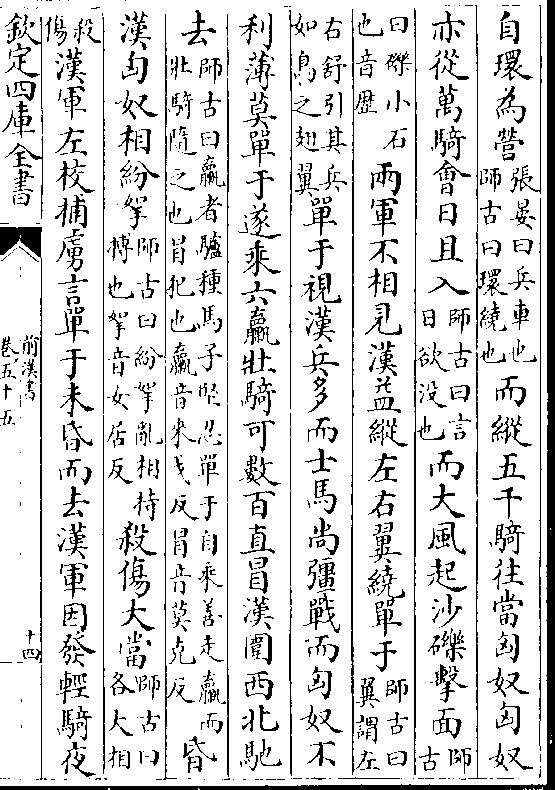 自環為營張晏曰兵車也師古曰環繞也而縱五千騎往當匈奴匈奴
亦從萬騎會日且入師古曰言日欲没也而大風起沙礫擊面師古
曰礫小石也音歷兩軍不相見漢益縱左右翼繞單于師古曰翼謂左
右舒引其兵如鳥之翅翼單于視漢兵多而士馬尚彊戰而匈奴不
利薄莫單于遂乘六驘壯騎可數百直冒漢圍西北馳
去師古曰驘者驢種馬子堅忍單于自乘善走驘而壯騎隨之也冒犯也驘音來戈反冒音莫克反昏
漢匈奴相紛挐師古曰紛挐亂相持搏也挐音女居反殺傷大當師古曰各大相
殺傷漢軍左校捕虜言單于未昏而去漢軍因發輕騎夜
欽定四庫全書
前漢書
卷五十五
十四